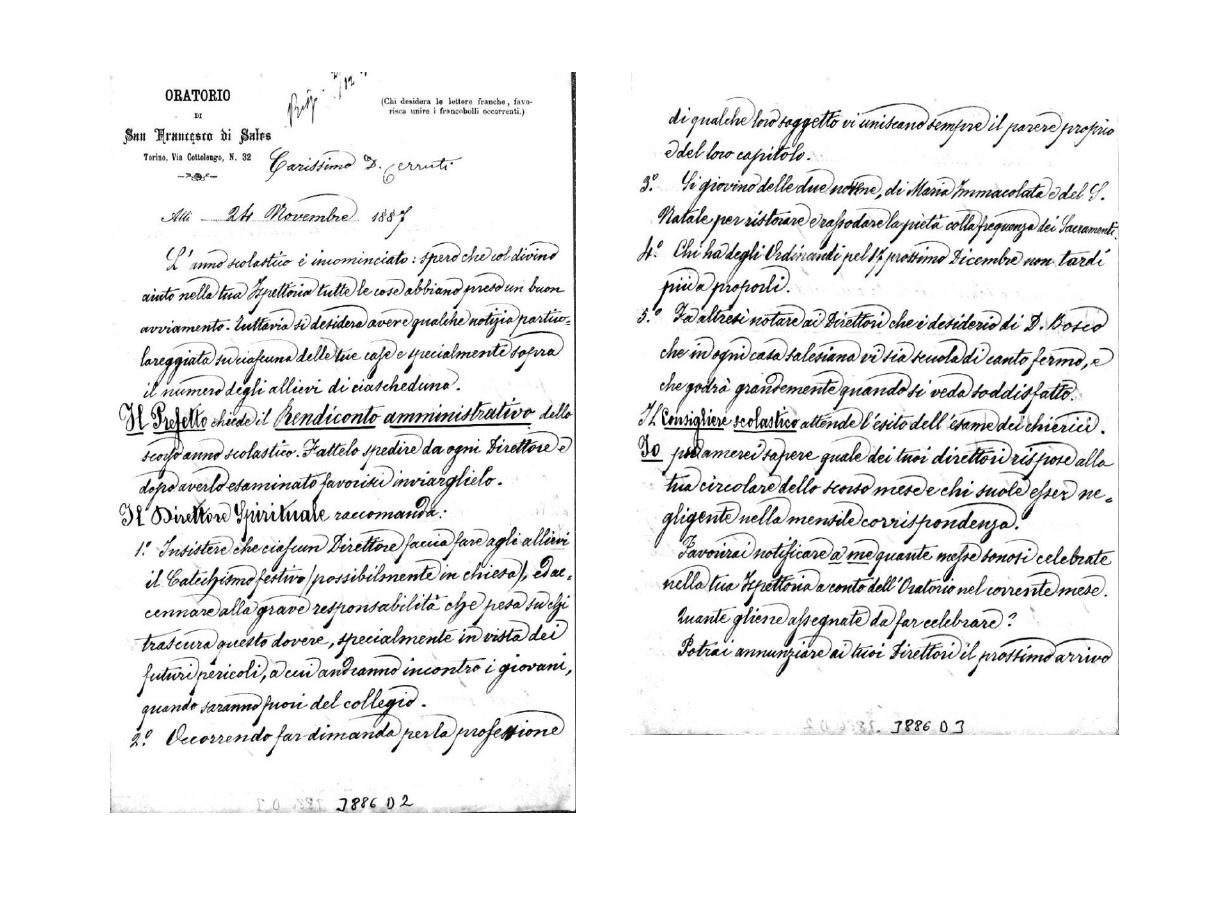 ORATORIO
DI
San Francesco di Sales
Torino, Via Cottolengo, N. 32
(Chi desidera le lettere franche, favo-
risca unire i francobolli occorrenti.)
Carissimo D. Cerruti
Alli 24 Novembre 1887
L'anno scolastico è incominciato: spero che col divino
aiuto nella tua Ispettoria tutte le cose abbiano preso un buon
avviamento. Tuttavia si desidera avere qualche notizia partico-
lareggiata su ciascuna delle tue case e specialmente sopra
il numero degli allievi di ciascheduna.
Il Prefetto chiede il Rendiconto amministrativo dello
scorso anno scolastico. Fattelo spedire da ogni Direttore e
dopo averlo esaminato favorisci inviarglielo.
Il Direttore Spirituale raccomanda:
1.° Insistere che ciascun Direttore faccia fare agli allievi
il Catechismo festivo (possibilmente in chiesa), ed ac-
cennare alla grave responsabilità che pesa su chi
trascura questo dovere, specialmente in vista dei
futuri pericoli, a cui andranno incontro i giovani,
quando saranno fuori del collegio.
2.° Occorrendo far dimanda per la professione
J886 D 2
di qualche loro soggetto vi uniscano sempre il parere proprio
e del loro capitolo.
3.° Si giovino delle due novene, di Maria Immacolata e del S.
Natale per ristorare e rassodare la pietà colla frequenza dei Sacramenti.
4.° Chi ha degli Ordinandi pel prossimo Dicembre non tardi
più a proporli.
5.° Fa altresì notare ai Direttori che è desiderio di D. Bosco
che in ogni casa salesiana vi sia scuola di canto fermo, e
che godrà grandemente quando si veda soddisfatto.
Il Consigliere scolastico attende l'esito dell'esame dei chierici.
Io poi amerei sapere quale dei tuoi direttori rispose alla
tua circolare dello scorso mese e chi suole esser ne-
gligente nella mensile corrispondenza.
Favorirai notificare a me quante messe sonosi celebrate
nella tua Ispettoria a conto dell'Oratorio nel corrente mese.
Quante gliene assegnate da far celebrare?
Potrai annunziare ai tuoi Direttori il prossimo arrivo
J886 D 3